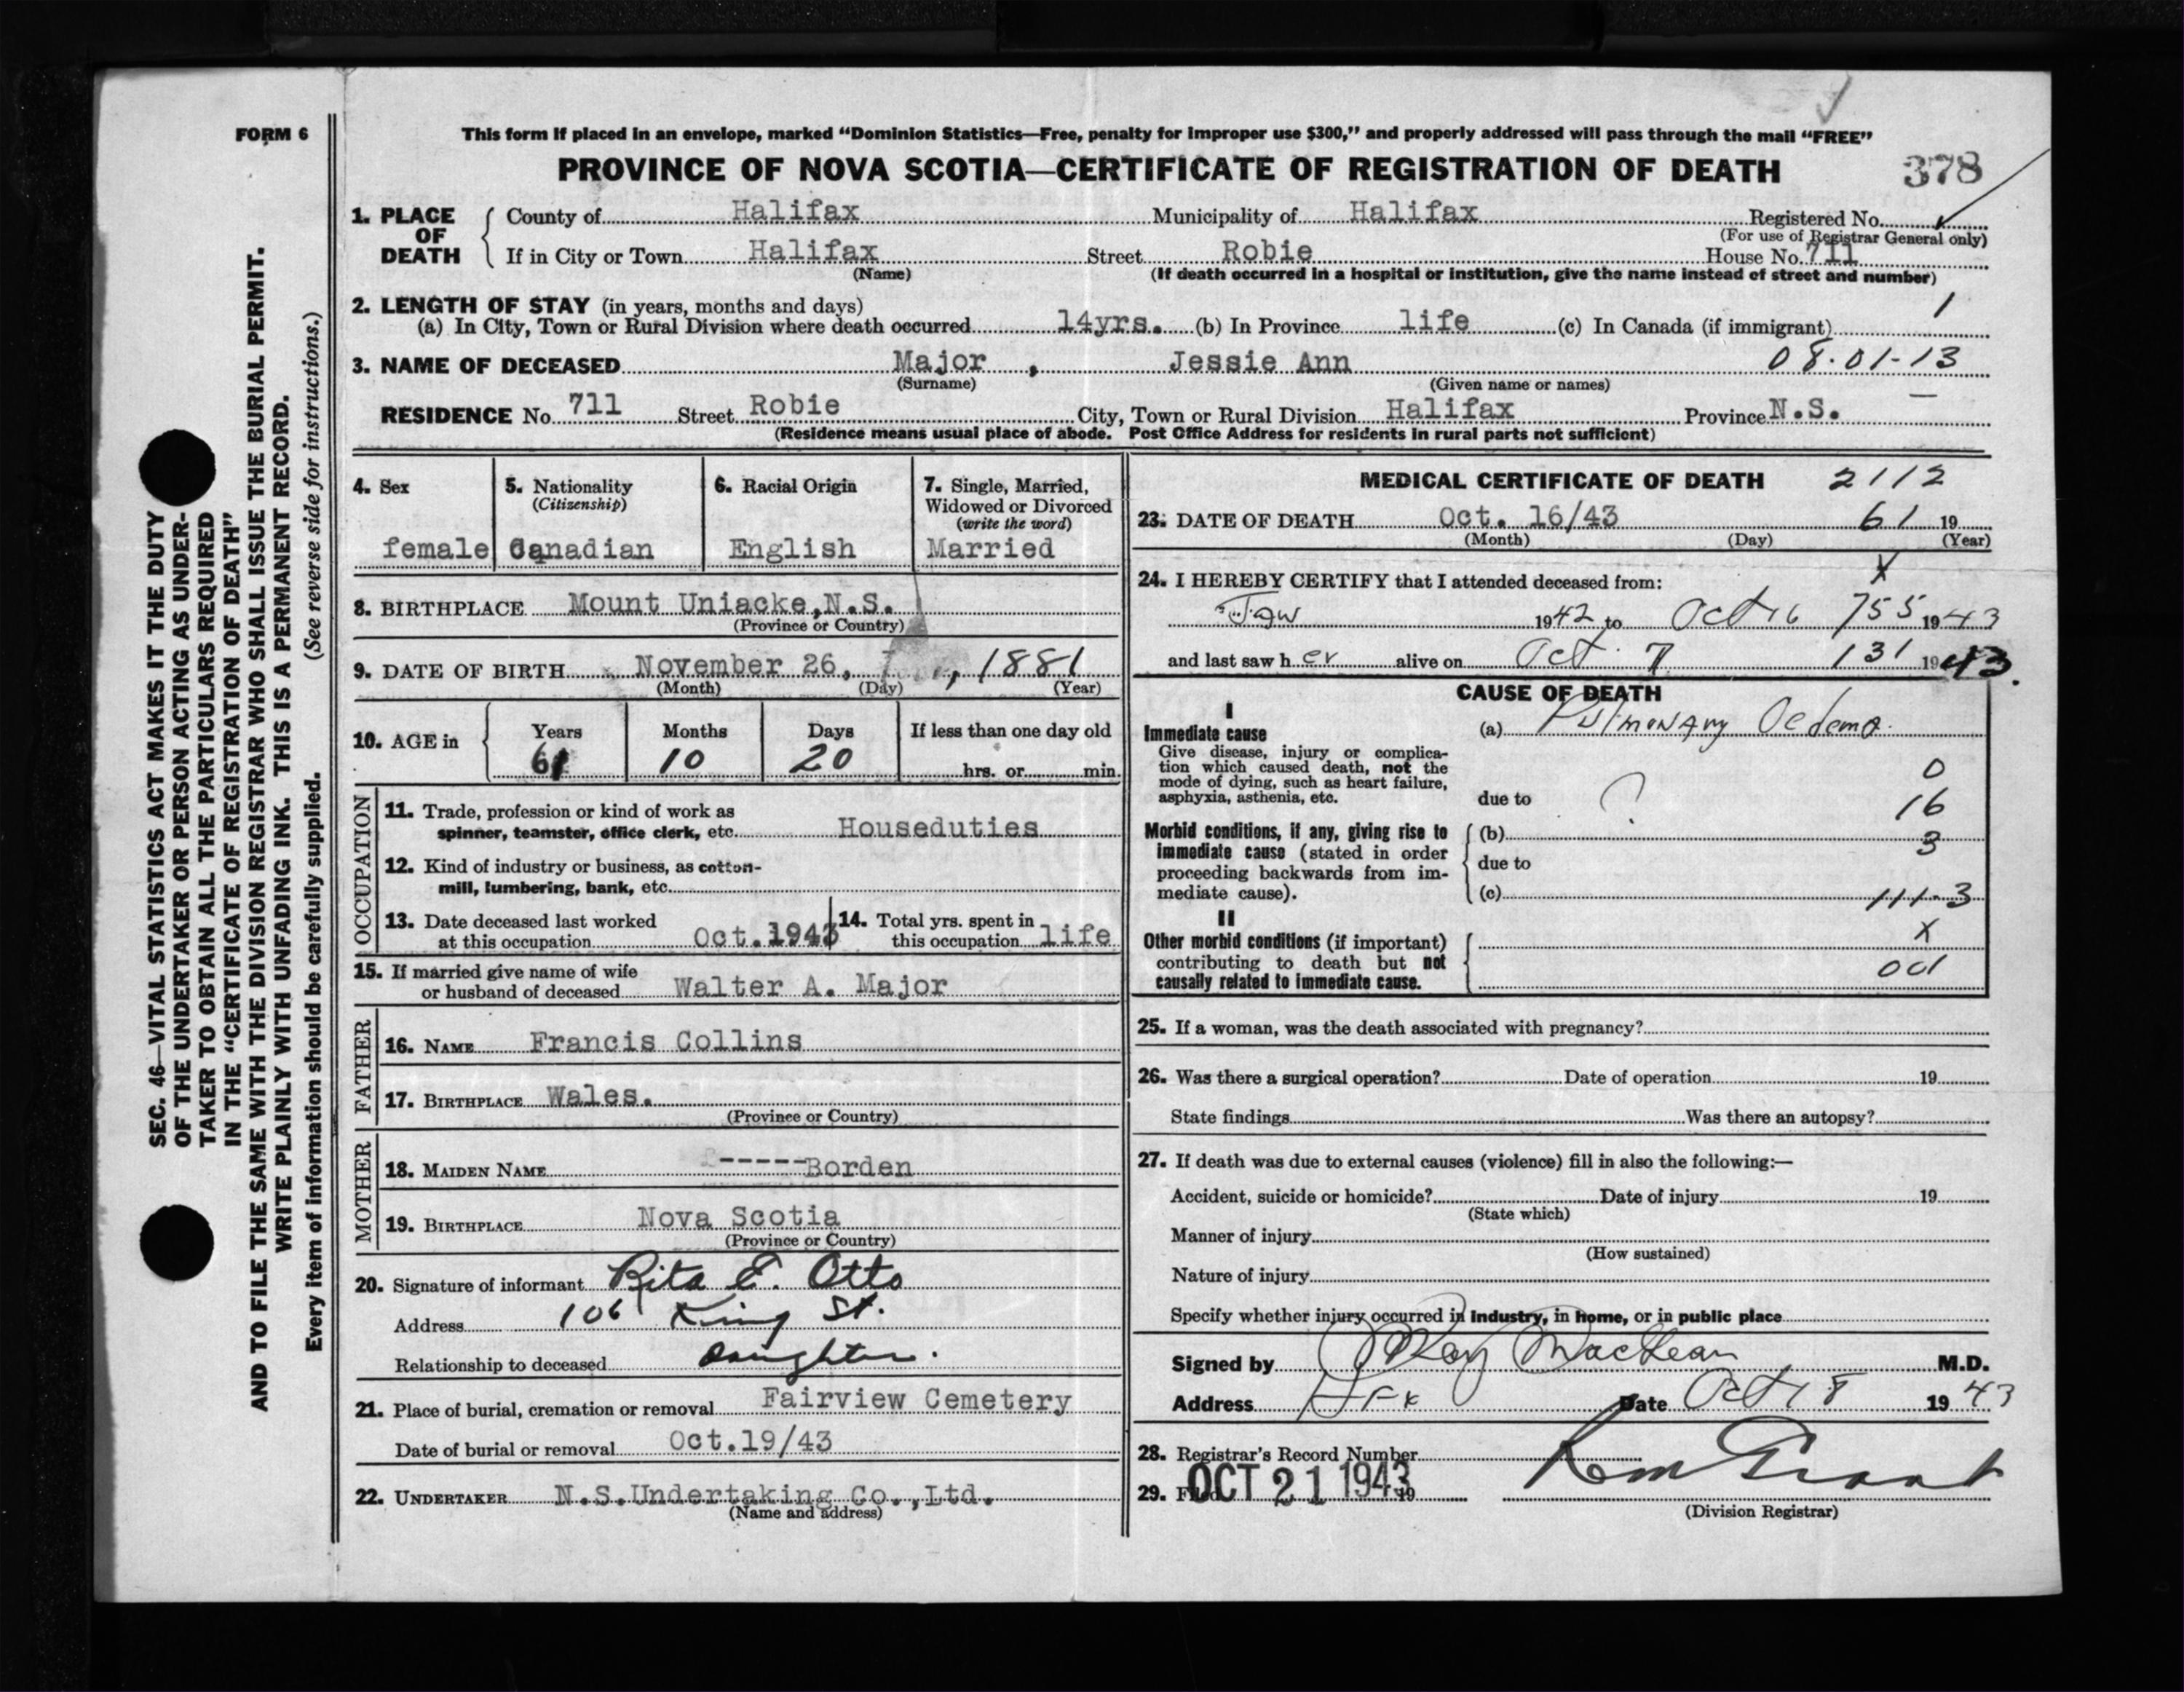 FORM 6
This form if placed in an envelope, marked “Dominion Statistics—Free, penalty for improper use $300,” and properly addressed will pass through the mail “FREE”
PROVINCE OF NOVA SCOTIA—CERTIFICATE OF REGISTRATION OF DEATH 378
1. PLACE OF DEATH
County of Halifax Municipality of Halifax Registered No.
(For use of Registrar General only)
If in City or Town Halifax Street Robie House No. 711
(Name) (If death occurred in a hospital or institution, give the name instead of street and number)
2. LENGTH OF STAY (in years, months and days) 1
(a) In City, Town or Rural Division where death occurred 14yrs. (b) In Province life (c) In Canada (if immigrant)
3. NAME OF DECEASED Major , Jessie Ann 08-01-13
(Surname) (Given name or names)
RESIDENCE No. 711 Street Robie City, Town or Rural Division Halifax Province N.S.
(Residence means usual place of abode. Post Office Address for residents in rural parts not sufficient)
4. Sex
female
5. Nationality
(Citizenship)
Canadian
6. Racial Origin
English
7. Single, Married,
Widowed or Divorced
(write the word)
Married
8. BIRTHPLACE Mount Uniacke,N.S.
(Province or Country)
9. DATE OF BIRTH November 26, , 1881
(Month) (Day) (Year)
10. AGE in
Years Months Days If less than one day old
61 10 20 hrs. or min.
OCCUPATION
11. Trade, profession or kind of work as
spinner, teamster, office clerk, etc. Houseduties
12. Kind of industry or business, as cotton-
mill, lumbering, bank, etc.
13. Date deceased last worked
at this occupation Oct.1943
14. Total yrs. spent in
this occupation life
15. If married give name of wife
or husband of deceased Walter A. Major
FATHER
16. NAME Francis Collins
17. BIRTHPLACE Wales.
(Province or Country)
MOTHER
18. MAIDEN NAME -----Borden
19. BIRTHPLACE Nova Scotia
(Province or Country)
20. Signature of informant Rita E. Otto
Address 106 King St.
Relationship to deceased Daughter.
21. Place of burial, cremation or removal Fairview Cemetery
Date of burial or removal Oct.19/43
22. UNDERTAKER N.S.Undertaking Co.,Ltd.
(Name and address)
MEDICAL CERTIFICATE OF DEATH 2112
23. DATE OF DEATH Oct. 16/43 61 19
(Month) (Day) (Year)
X
24. I HEREBY CERTIFY that I attended deceased from:
Jan 1942 to Oct 16 755 1943
and last saw h er alive on Oct. 7 131 1943.
CAUSE OF DEATH
I
Immediate cause
Give disease, injury or complica-
tion which caused death, not the
mode of dying, such as heart failure,
asphyxia, asthenia, etc.
(a) Pulmonary Oedema.
0
due to ? 16
Morbid conditions, if any, giving rise to
immediate cause (stated in order
proceeding backwards from im-
mediate cause).
(b) 3
due to
(c) 111-3
II
Other morbid conditions (if important)
contributing to death but not
causally related to immediate cause.
X
001
25. If a woman, was the death associated with pregnancy?
26. Was there a surgical operation? Date of operation 19
State findings Was there an autopsy?
27. If death was due to external causes (violence) fill in also the following:—
Accident, suicide or homicide? Date of injury 19
(State which)
Manner of injury
(How sustained)
Nature of injury
Specify whether injury occurred in industry, in home, or in public place
Signed by Roy MacLean M.D.
Address Hfx Date Oct 18 1943
28. Registrar's Record Number
29. OCT 21 1943 19
(Division Registrar)
SEC. 46—VITAL STATISTICS ACT MAKES IT THE DUTY
OF THE UNDERTAKER OR PERSON ACTING AS UNDER-
TAKER TO OBTAIN ALL THE PARTICULARS REQUIRED
IN THE “CERTIFICATE OF REGISTRATION OF DEATH”
AND TO FILE THE SAME WITH THE DIVISION REGISTRAR WHO SHALL ISSUE THE BURIAL PERMIT.
WRITE PLAINLY WITH UNFADING INK. THIS IS A PERMANENT RECORD.
Every item of information should be carefully supplied. (See reverse side for instructions.)